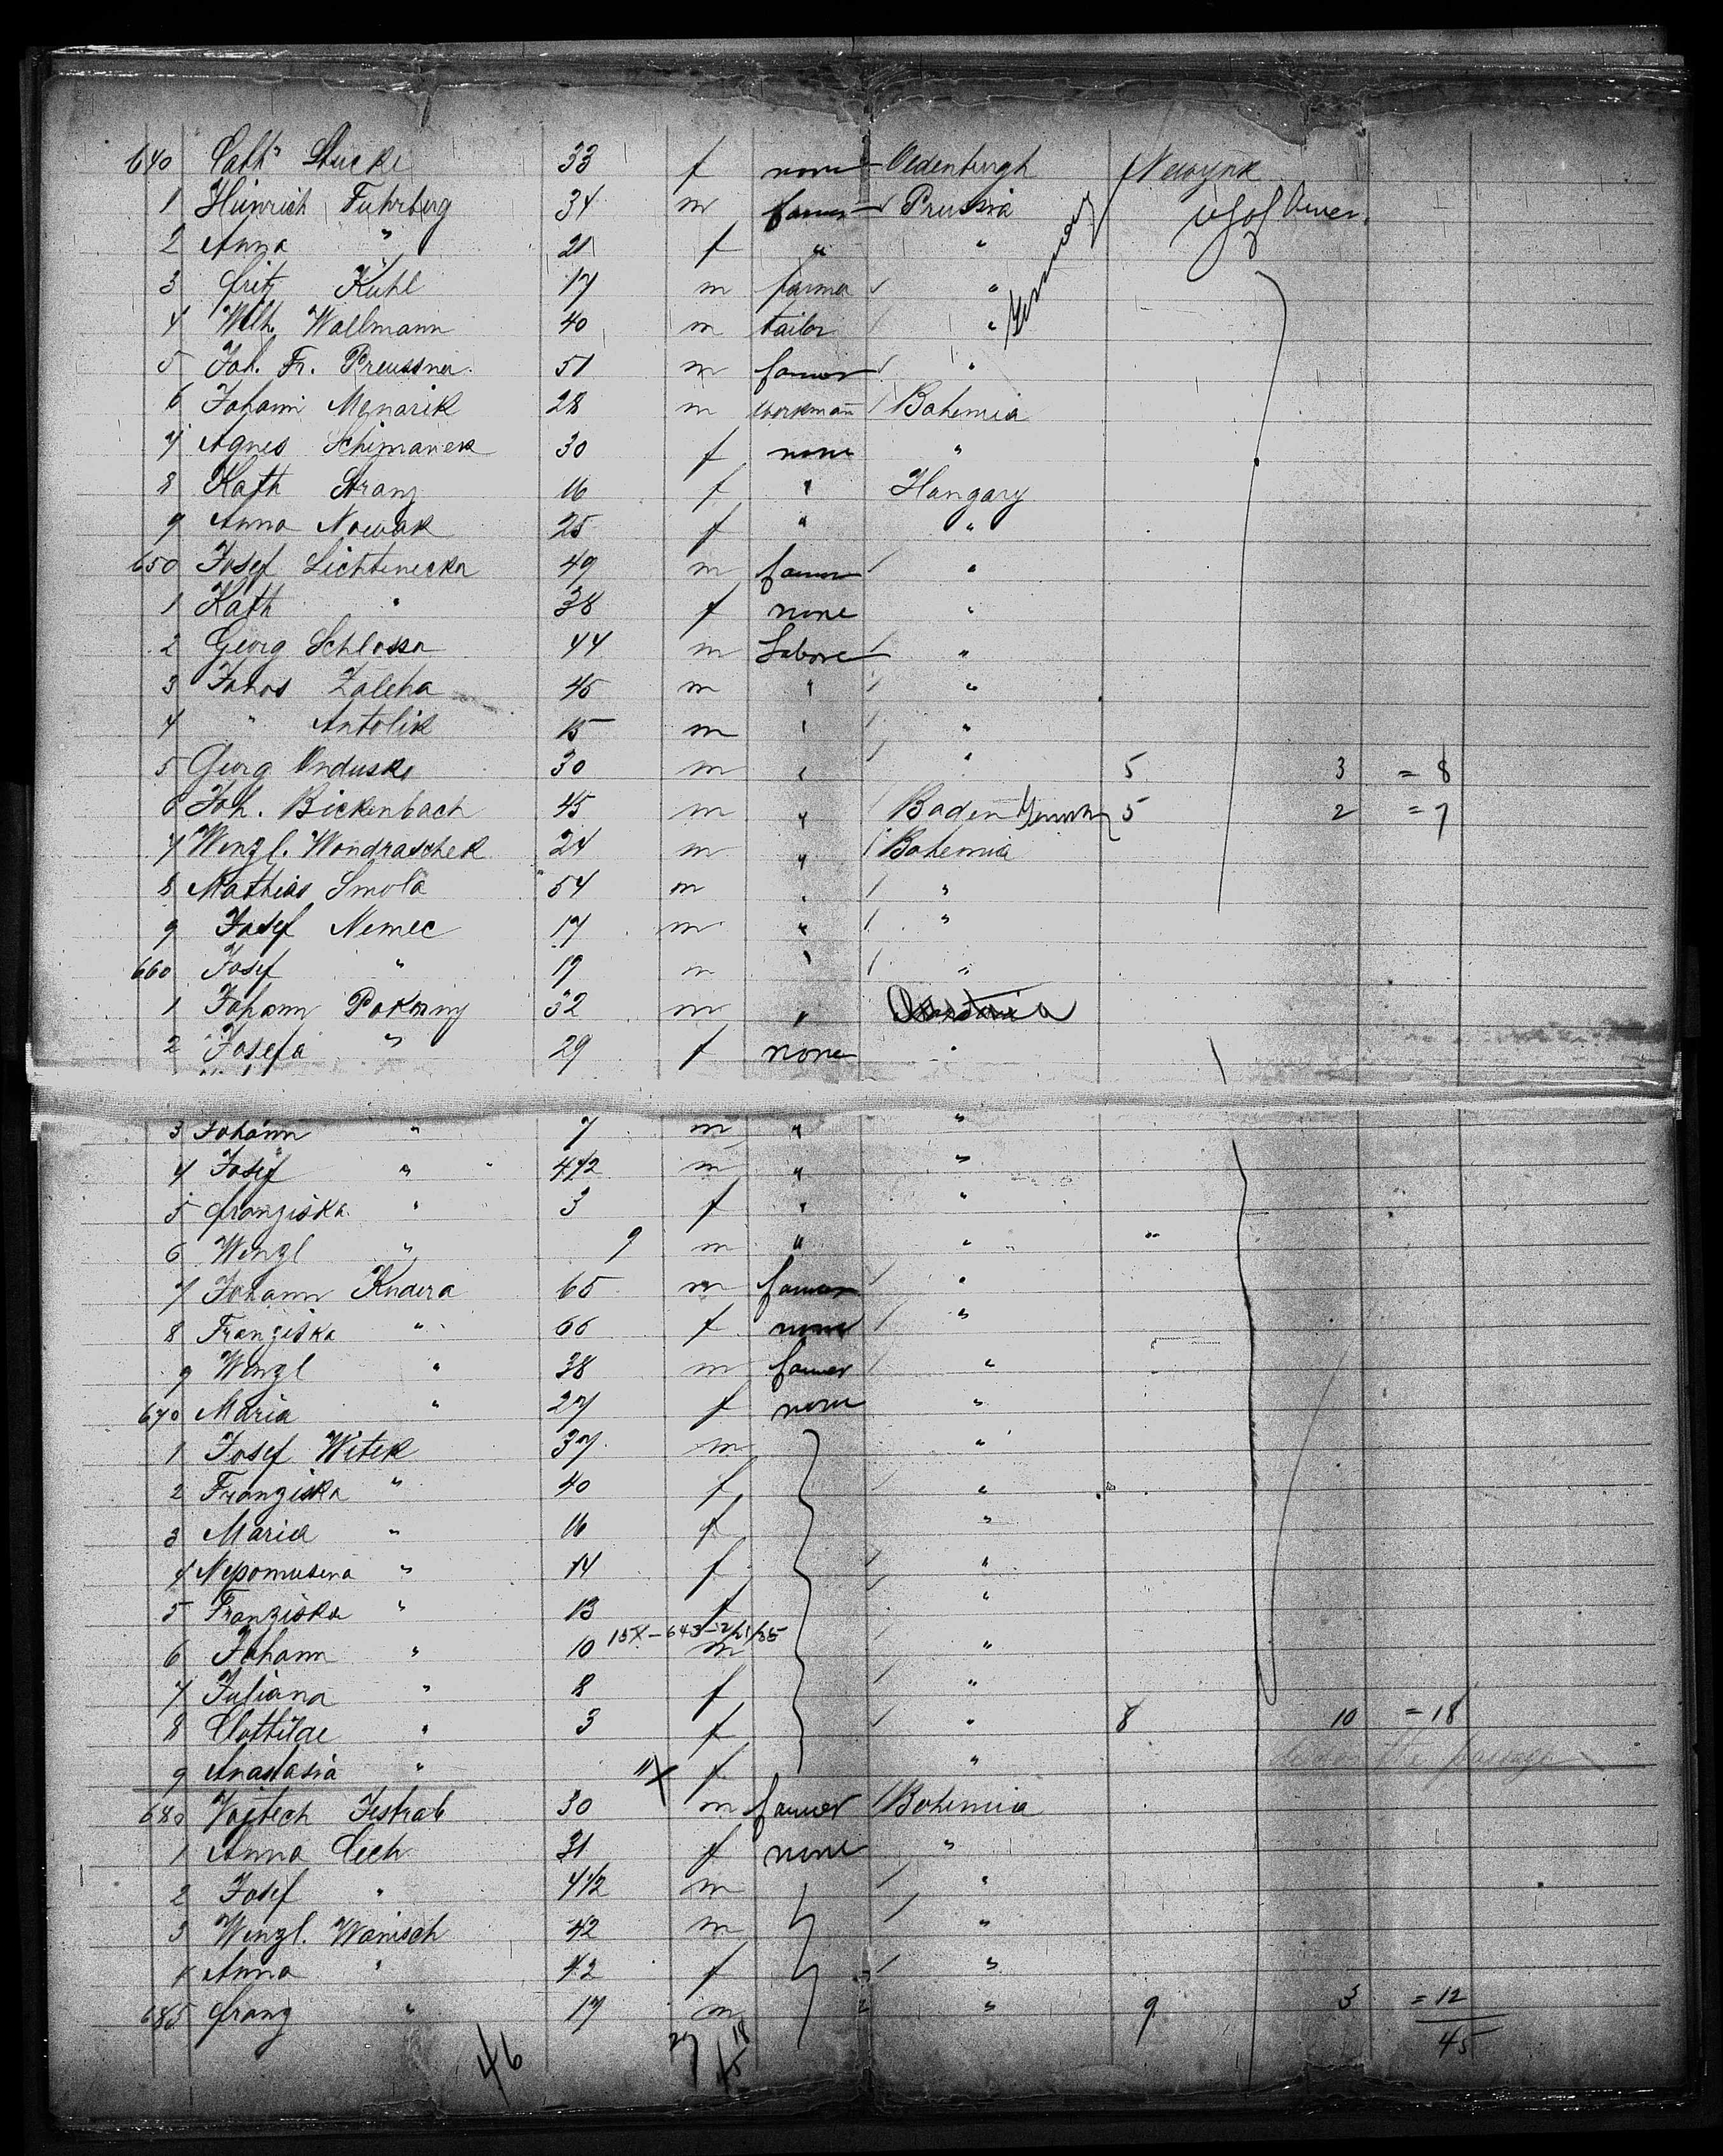 640 Cathn Stucke 33 f none Oldenburgh Newyork
1 Heinrich Fuhrberg 34 m farmer Prussia Germany USof Amer.
2 Anna " 21 f " "
3 Fritz Kuhl 17 m farmer "
4 Wilh. Wallmann 40 m tailor "
5 Joh. Fr. Preussner 51 m farmer "
6 Johann Menarik 28 m workmañ Bohemia
7 Agnes Schimanek 30 f none "
8 Kath Stranz 16 f " Hungary
9 Anna Nowak 25 f " "
650 Josef Lichtenecker 49 m farmer "
1 Kath " 38 f none "
2 Georg Schlosser 44 m Labore "
3 Janos Zaleha 45 m " "
4 " Antolik 15 m " "
5 Georg Onduska 30 m " " 5 3 = 8
6 Joh. Bickenbach 45 m " Baden Germany 5 2 = 7
7 Wenzl. Wondraschek 24 m " Bohemia
8 Mathias Smola 54 m " "
9 Josef Nemec 17 m " "
660 Josef " 19 m " "
1 Johann Pokorny 32 m "
2 Josefa " 29 f none "
3 Johann " 7 m " "
4 Josef " 4 1/2 m " "
5 Franziska " 3 f " "
6 Wenzl " 9 m " " "
7 Johann Kudera 65 m farmer "
8 Franziska " 66 f none "
9 Wenzl " 38 m farmer "
670 Maria " 27 f none "
1 Josef Witek 37 m "
2 Franziska " 40 f "
3 Maria " 16 f "
4 Nepomusena " 14 f "
5 Franziska " 13 f "
15X-643-2/21/35
6 Johann " 10 m "
7 Juliana " 8 f "
8 Clottilde " 3 f " 8 10 = 18
9 Anastasia " 11 X f " died on the passage
680 Vojtech Jestrab 30 m farmer Bohemia
1 Anna Cech 31 f none "
2 Josef " 4 1/2 m "
3 Wenzl. Wanisch 42 m "
4 Anna " 42 f "
685 Franz " 17 m " 9 3 = 12
46 27 18 45 45